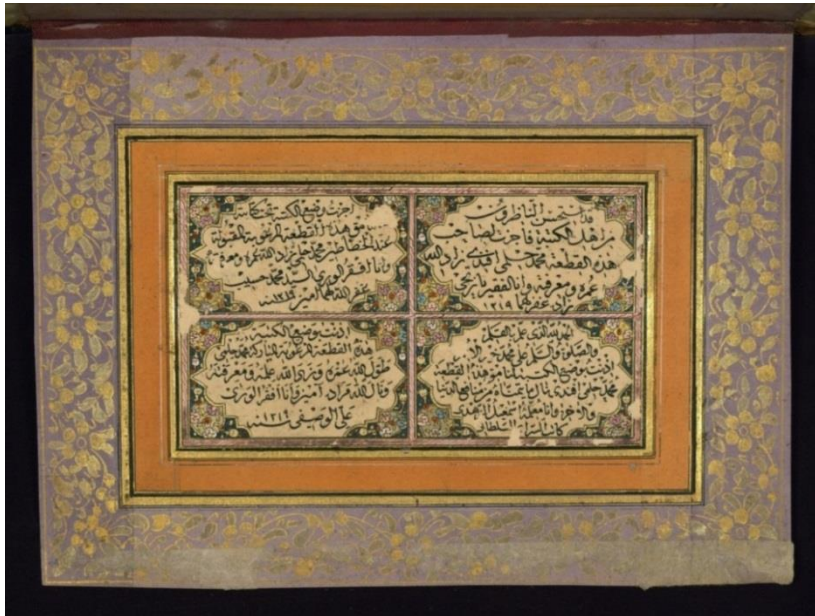 قد استحسن الناظرون
من اهل الكتبه فاجزت لصاحب
هذه القطعة محمد حلمى افندى زاد الله
عمره ومعرفته وانا الفقير
زاده غفر لهما ١٢١٩
اجزت وضع الكتبه تحت كتابة
هذه القطعة المرغوبة المقبولة
محمد حلمى زاد الله عمره ومعرفته
وانا افقر الورى السيد محمد حسيب
غفر الله لهما امين ١٢١٩ سنه
الحمد لله الذى علم بالقلم
والصلوة والسلام على محمد
اذنت بوضع الكتبه لنامق هذه القطعة
محمد حلمى افندى
والاخرة وانا معلمه اسمعيل الزهدى
كاتب السراى السلطانى
اذنت بوضع الكتبة
هذه القطعة المرغوبة المباركة محمد حلمى
طول الله عمره ويزيد الله علمه ومعرفته
ونال الله مراده امين وانا افقر الورى
على الوصفى سنه ١٢١٩